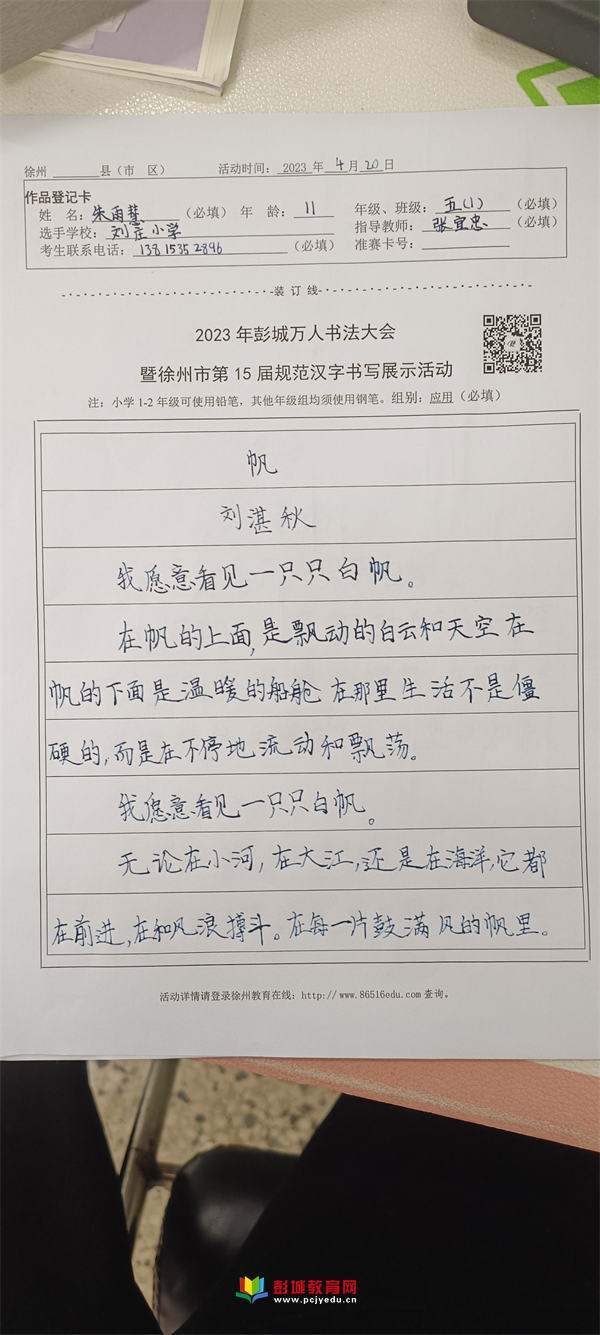 徐州 ______县（市 区） 活动时间：2023 年 4 月 20 日
作品登记卡
姓 名：朱雨慧（必填）年 龄：11 年级、班级：五(1)（必填）
选手学校：刘庄小学 指导教师：张宜忠（必填）
考生联系电话：13815352896（必填） 准赛卡号：
装 订 线
2023 年彭城万人书法大会
暨徐州市第 15 届规范汉字书写展示活动
注：小学 1-2 年级可使用铅笔，其他年级组均须使用钢笔。组别：应用（必填）
帆
刘湛秋
我愿意看见一只只白帆。
在帆的上面,是飘动的白云和天空在
帆的下面是温暖的船舱 在那里生活不是僵
硬的,而是在不停地流动和飘荡。
我愿意看见一只只白帆。
无论在小河,在大江,还是在海洋,它都
在前进,在和风浪搏斗。在每一片鼓满风的帆里。
活动详情请登录徐州教育在线：http://www.86516edu.com 查询。
彭城教育网
www.pcjyedu.cn